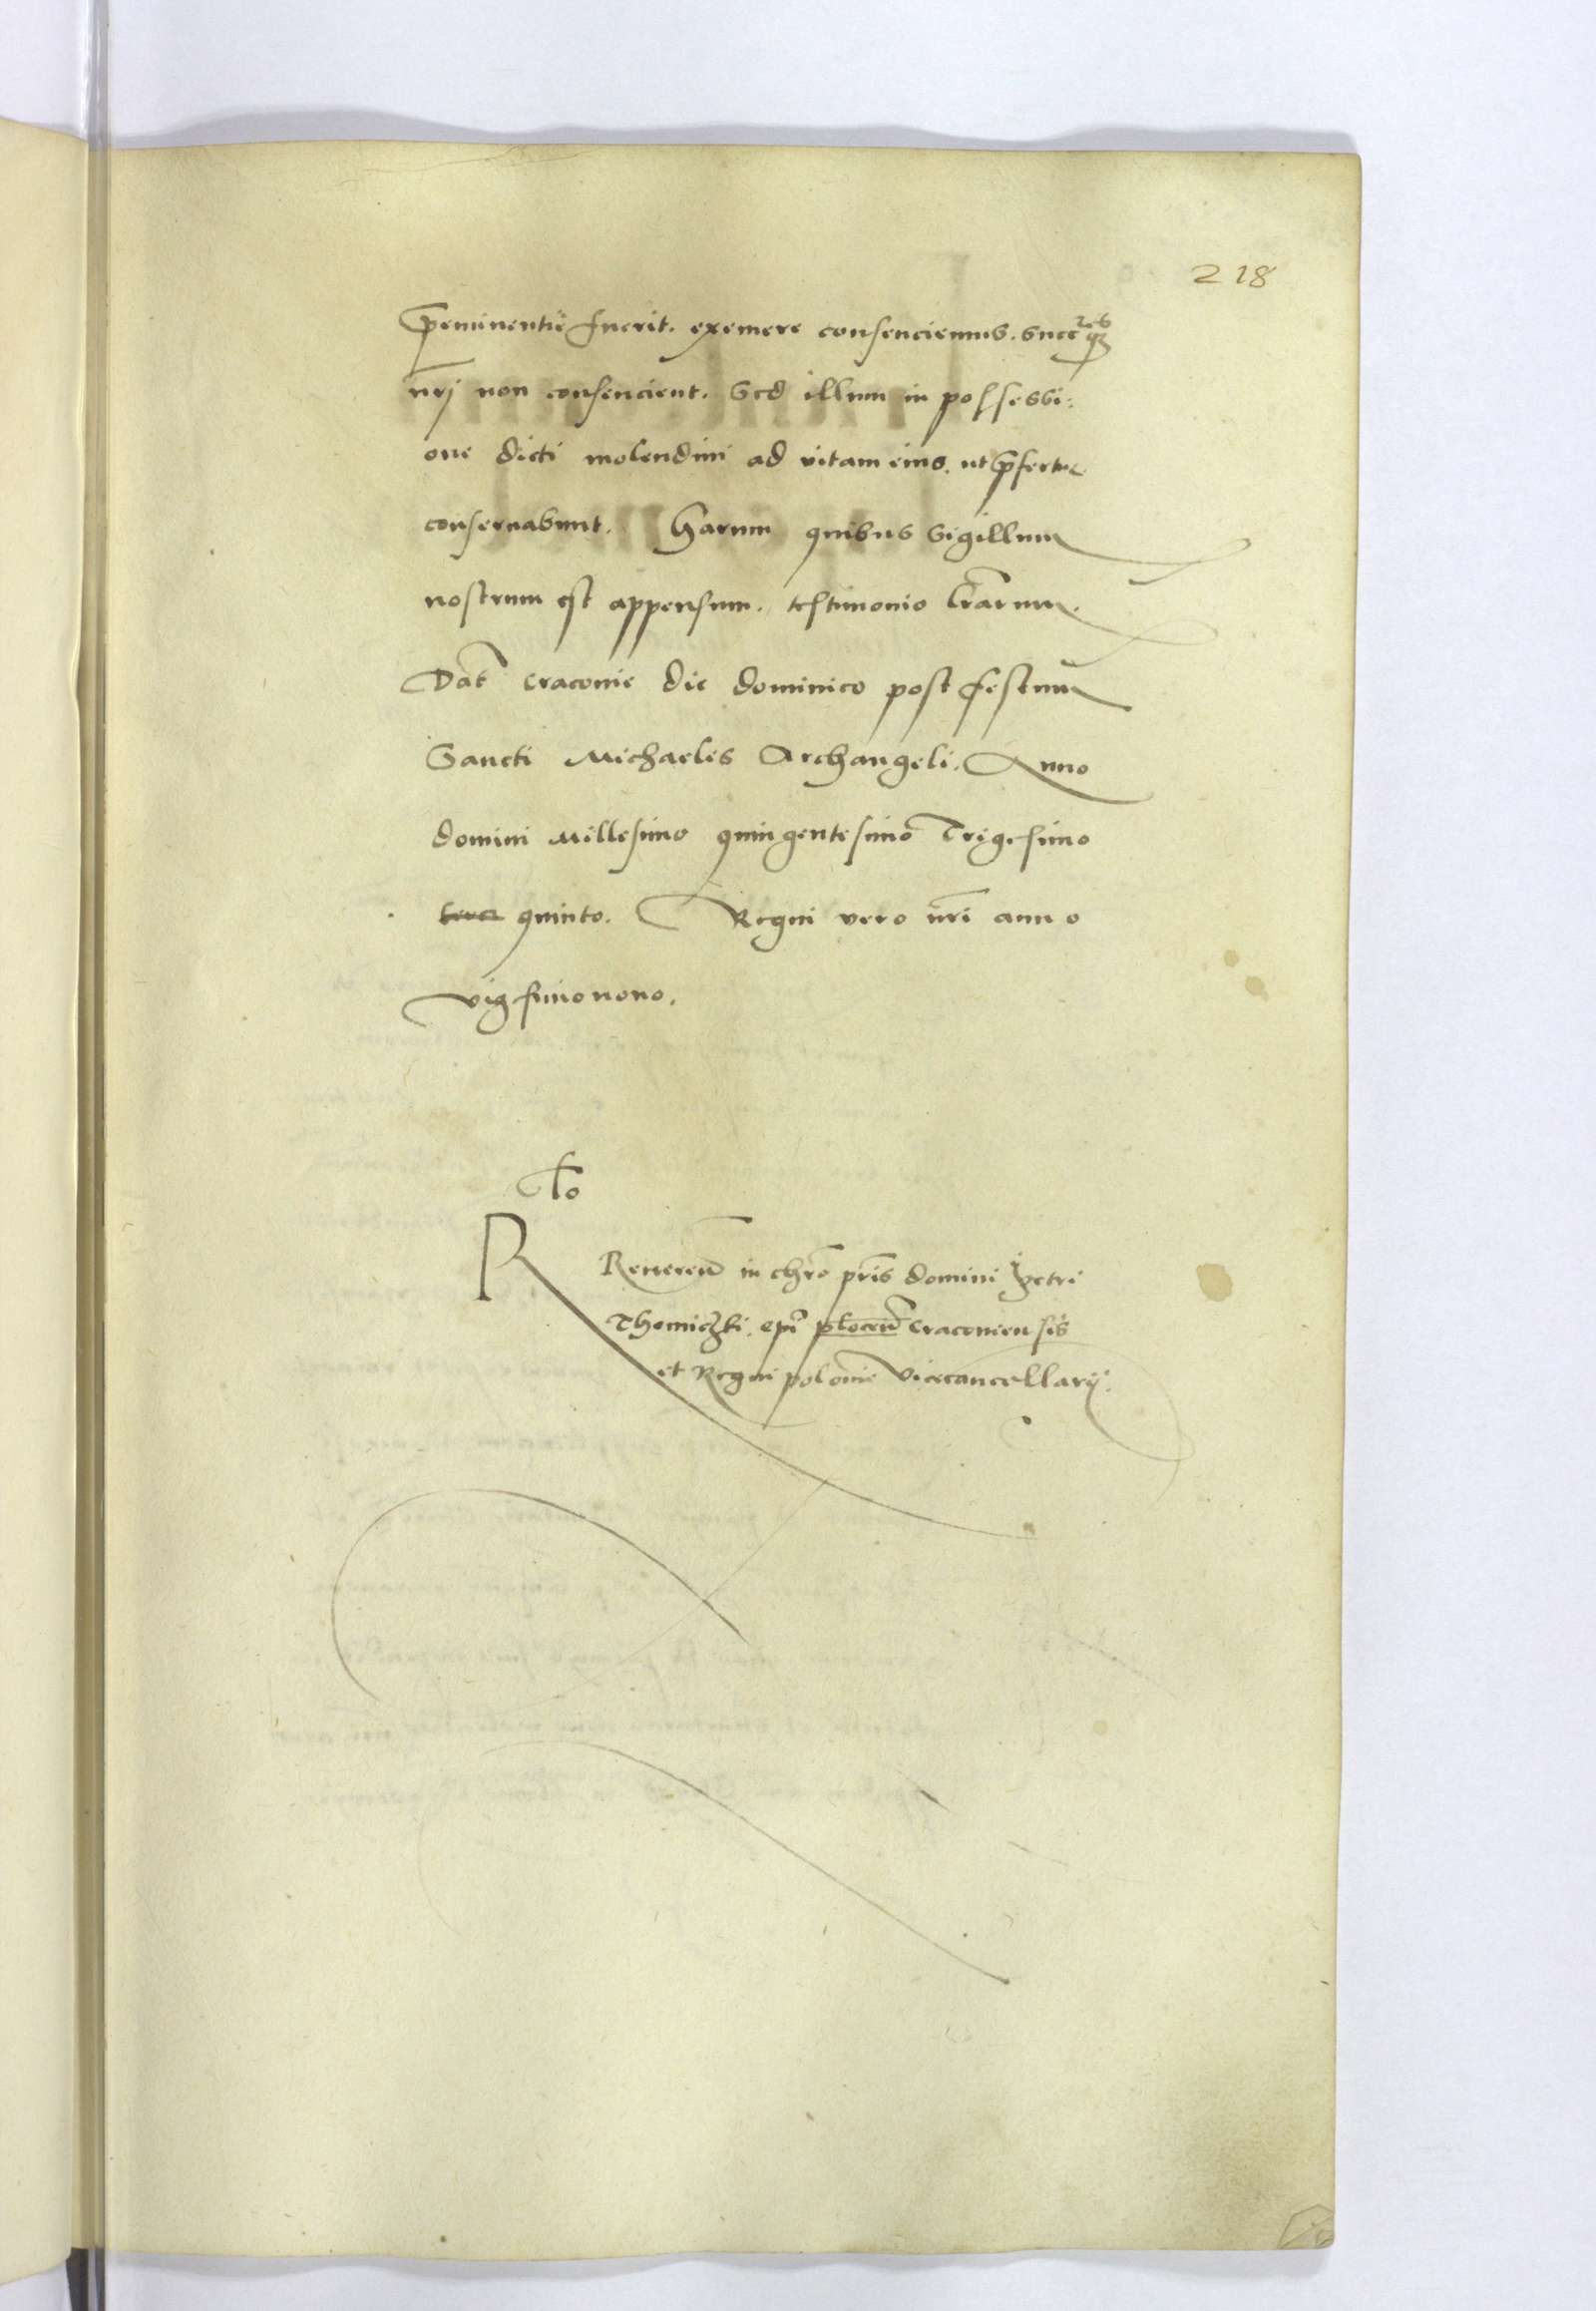 218
p̄eminentie fuerit. exemere consenciemus. Succ^res q3
nrj non consencient. Sed illum in possessi:
one dicti molendini ad vitam eius. ut p̄fertur
conseruabunt. Harum quibus Sigillum
nostrum est appensum. testimonio lrarum.
Dat̄ Cracovie die dominico post festum
Sancti Michaelis Archangeli. Anno
domini Millesimo quingentesimo Trigesimo
quinto. Regni vero nr̄i anno
vigesimonono.
R^lto
Reueren̄ in chro pr̄is domini Petri
Thomiczki. ep̄i plocen̄ Cracoviensis
et Regni polonie Vicecancellarij.